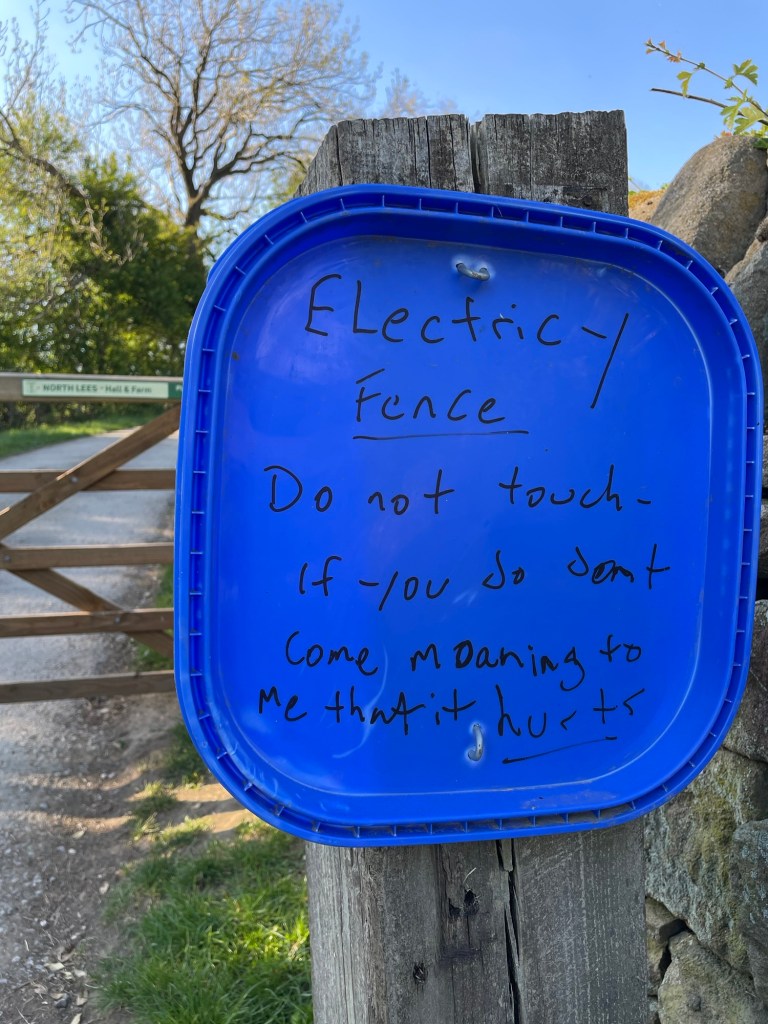 NORTH LEES - Hall & Farm
ELectricy
Fence
Do not touch-
If you do dont
Come moaning to
Me that it hurts